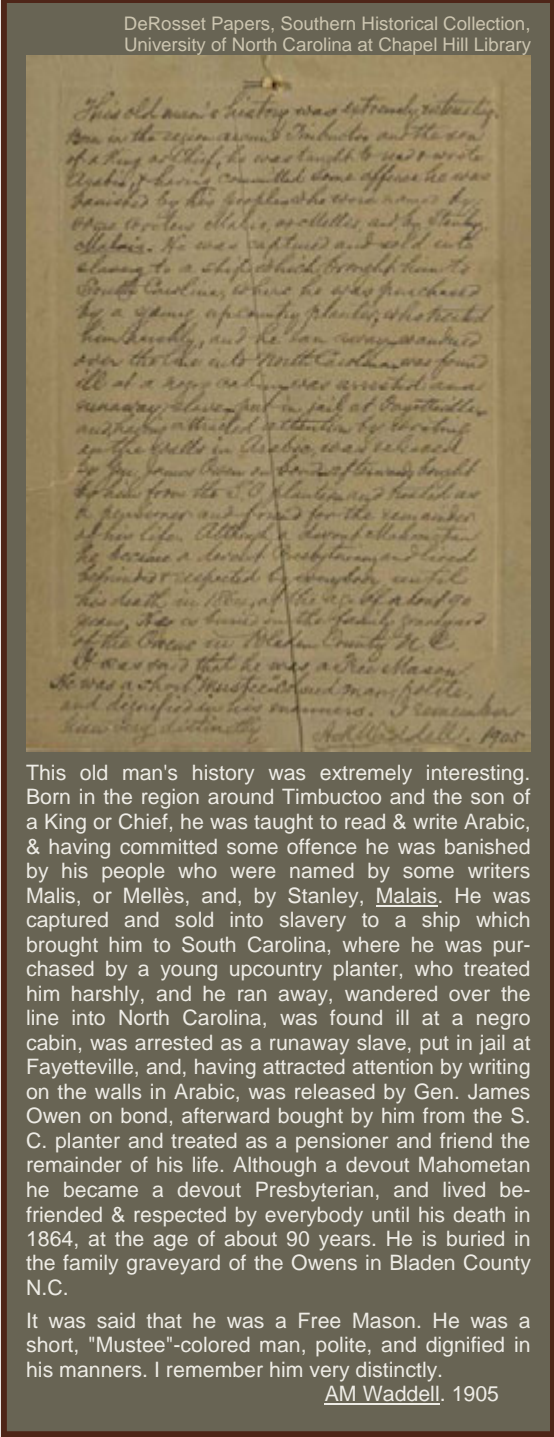 DeRosset Papers, Southern Historical Collection,
University of North Carolina at Chapel Hill Library
This old man's history was extremely interesting.
Born in the region around Timbuctoo and the son
of a King or Chief, he was taught to read & write
Arabic, & having committed some offence he was
banished by his people who were named by
some writers Malis, or Mellès, and, by Stanley,
Malais. He was captured and sold into
slavery to a ship which brought him to
South Carolina, where he was purchased
by a young upcountry planter, who treated
him harshly, and he ran away, wandered
over the line into North Carolina, was found
ill at a negro cabin, was arrested as a
runaway slave, put in jail at Fayetteville,
and, having attracted attention by writing
on the walls in Arabic, was released
by Gen. James Owen on bond, afterward bought
by him from the S.C. planter and treated as
a pensioner and friend for the remainder
of his life. Although a devout Mahometan
he became a devout Presbyterian, and lived
befriended & respected by everybody until
his death in 1864, at the age of about 90
years. He is buried in the family graveyard
of the Owens in Bladen County N.C.
It was said that he was a Free Mason.
He was a short, "Mustee"-colored man, polite,
and dignified in his manners. I remember
him very distinctly
AM Waddell. 1905
This old man's history was extremely interesting.
Born in the region around Timbuctoo and the son of
a King or Chief, he was taught to read & write Arabic,
& having committed some offence he was banished
by his people who were named by some writers
Malis, or Mellès, and, by Stanley, Malais. He was
captured and sold into slavery to a ship which
brought him to South Carolina, where he was pur-
chased by a young upcountry planter, who treated
him harshly, and he ran away, wandered over the
line into North Carolina, was found ill at a negro
cabin, was arrested as a runaway slave, put in jail at
Fayetteville, and, having attracted attention by writing
on the walls in Arabic, was released by Gen. James
Owen on bond, afterward bought by him from the S.
C. planter and treated as a pensioner and friend the
remainder of his life. Although a devout Mahometan
he became a devout Presbyterian, and lived be-
friended & respected by everybody until his death in
1864, at the age of about 90 years. He is buried in
the family graveyard of the Owens in Bladen County
N.C.
It was said that he was a Free Mason. He was a
short, "Mustee"-colored man, polite, and dignified in
his manners. I remember him very distinctly.
AM Waddell. 1905